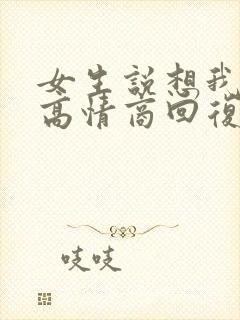 女生說想我
高情商回復
吱吱